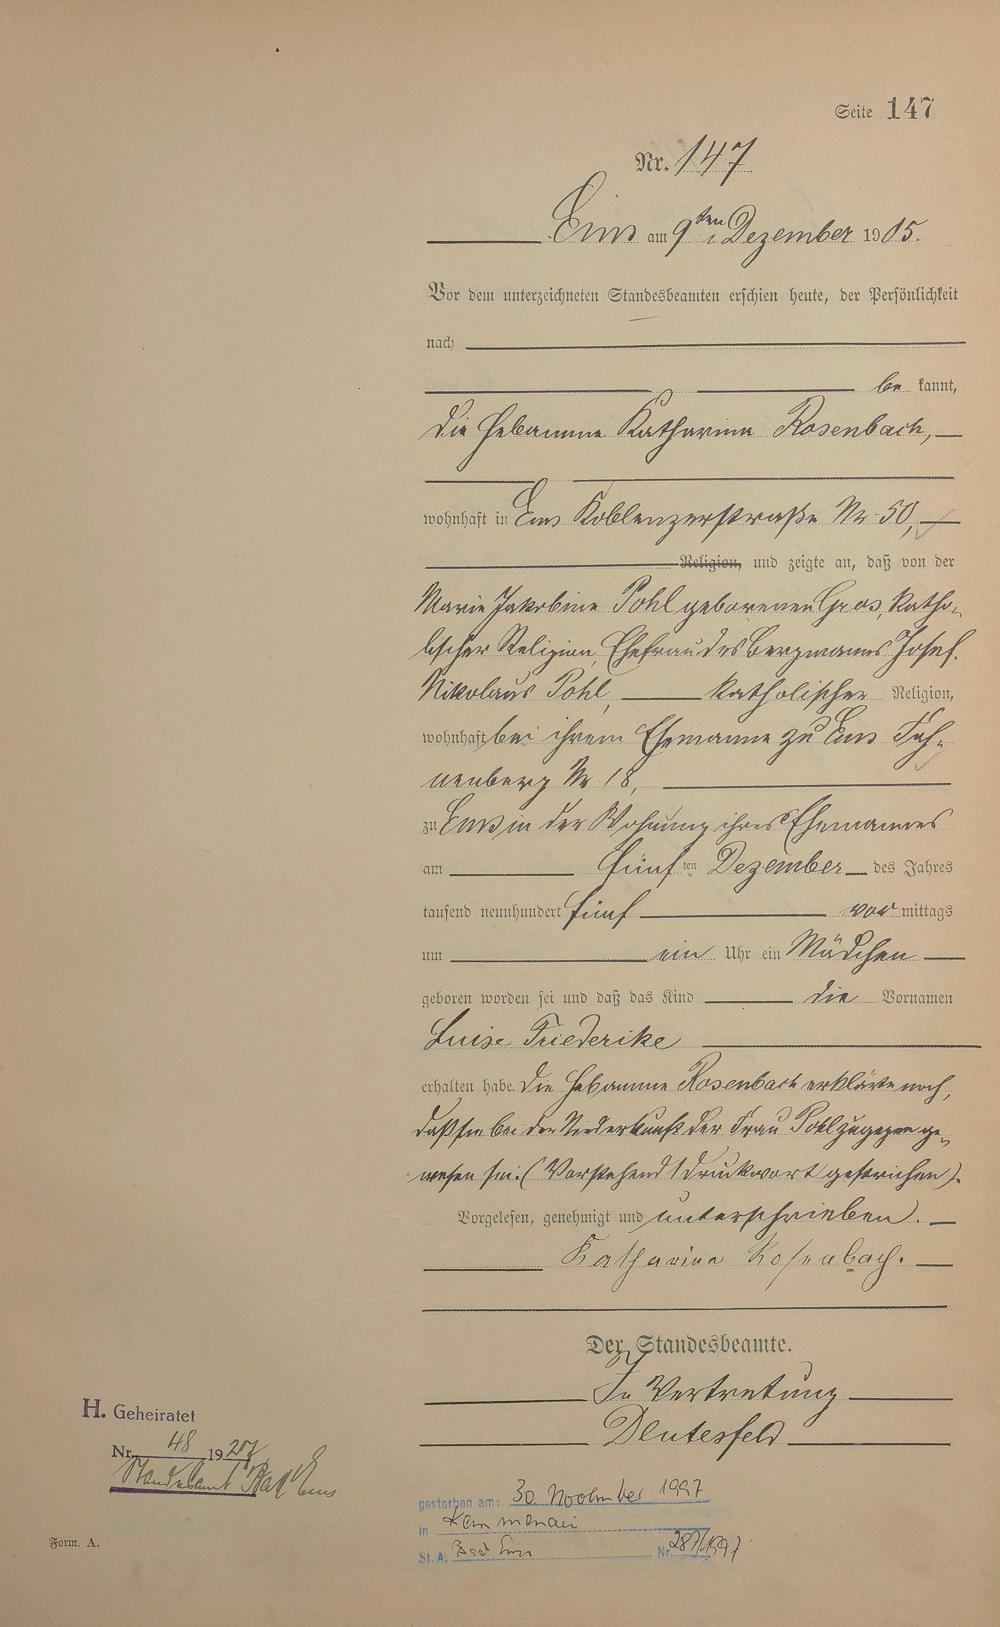 Seite 147
Nr. 147
Ems am 9ten Dezember 1905.
Vor dem unterzeichneten Standesbeamten erschien heute, der Persönlichkeit
nach
be kannt,
die Hebamme Katharina Rosenbach,
wohnhaft in Ems Koblenzerstraße Nr 50,
Religion, und zeigte an, daß von der
Marie Jakobine Pohl geborenen Gros, katho-
lischer Religion, Ehefrau des Bergmanns Josef
Nikolaus Pohl, katholischer Religion,
wohnhaft bei ihrem Ehemanne zu Ems
nenberg Nr 18,
zu Ems in der Wohnung ihres Ehemannes
am fünften Dezember des Jahres
tausend neunhundert fünf vor mittags
um ein Uhr ein Mädchen
geboren worden sei und daß das Kind die Vornamen
Luise Friederike
erhalten habe. Die Hebamme Rosenbach erklärte noch,
daß sie bei der Niederkunft der Frau Pohl zugegen ge-
wesen sei. (Vorstehend 1 Druckwort gestrichen).
Vorgelesen, genehmigt und unterschrieben.
Katharina Rosenbach.
Der Standesbeamte.
In Vertretung
Deutesfeld
H. Geheiratet
Nr. 48 1927
Standesamt Bad Ems
gestorben am: 30. November 1997
in Kemmenau
St. A. Bad Ems Nr. 287/1997
Form. A.